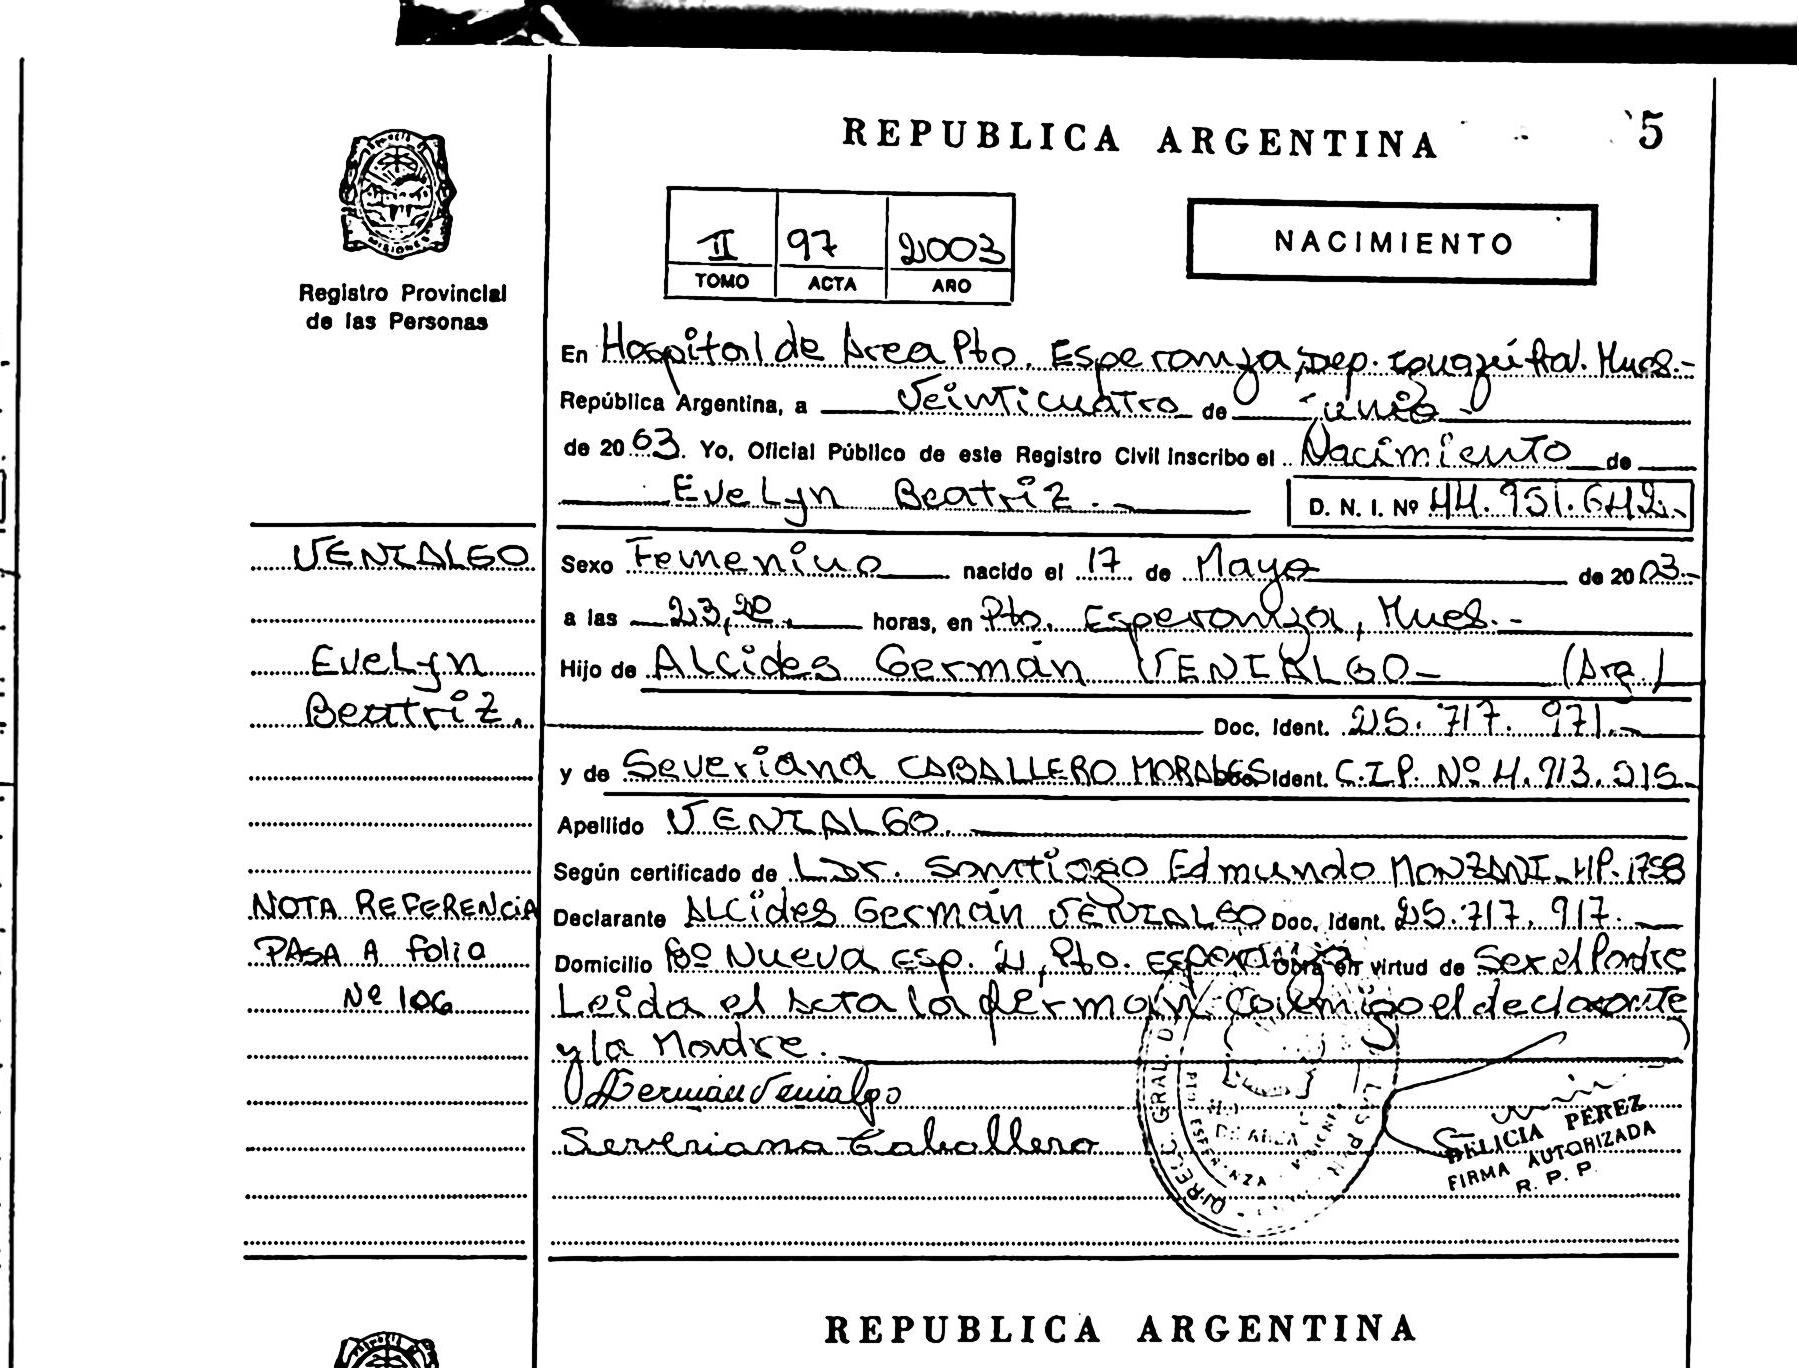 REPUBLICA ARGENTINA
5
II 97 2003
TOMO ACTA AÑO
NACIMIENTO
MISIONES
Registro Provincial
de las Personas
En Hospital de Area Pto. Esperanza, Dep. Iguazú Mnes.-
República Argentina, a Veinticuatro de junio -
de 2003. Yo, Oficial Público de este Registro Civil inscribo el Nacimiento de
Evelyn Beatriz.- D. N. I. Nº 44.951.642.-
VENIALGO
Evelyn
Beatriz.
NOTA REFERENCIA
PASA A folio
Nº 106
Sexo Femenino nacido el 17 de Mayo de 2003.-
a las 23,20. horas, en Pto. Esperanza, Mnes.-
Hijo de Alcides Germán VENIALGO- (Arg.)
Doc. Ident. 25.717.971.-
y de Severiana CABALLERO MORALES Doc. Ident. C.I.P. Nº 4.913.215.-
Apellido VENIALGO.
Según certificado de Dr. Santiago Edmundo MONZANI-MP.1758
Declarante Alcides Germán VENIALGO Doc. Ident. 25.717.917.-
Domicilio Bº Nueva Esp. 2, Pto. Esperanza Obra en virtud de Ser el Padre
Leida el Acta la firman conmigo el declarante
y la Madre.
Germán Venialgo
Severiana Caballero
DELICIA PEREZ
FIRMA AUTORIZADA
R. P. P.
REPUBLICA ARGENTINA